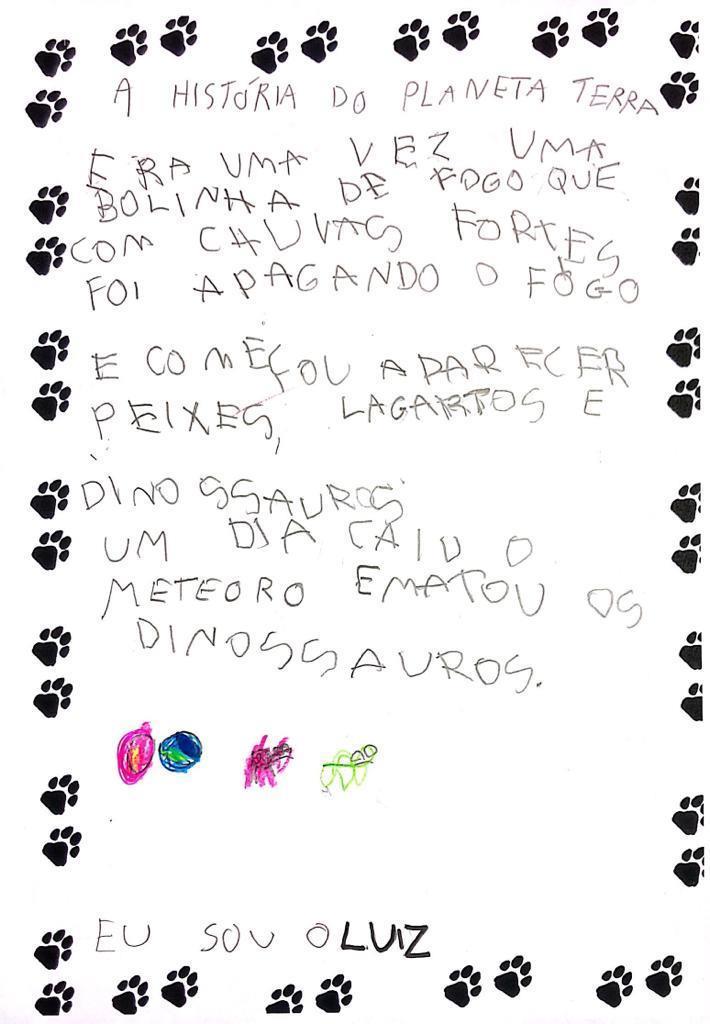 A HISTÓRIA DO PLANETA TERRA
ERA UMA VEZ UMA
BOLINHA DE FOGO QUE
COM CHUVAS FORTES
FOI APAGANDO O FOGO
E COMEÇOU APARECER
PEIXES, LAGARTOS E
DINOSSAUROS
UM DIA CAIU O
METEORO EMATOU OS
DINOSSAUROS.
EU SOU O LUIZ